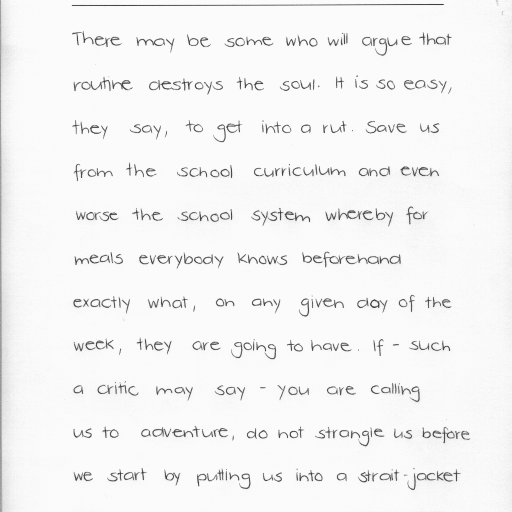 There may be some who will argue that
routine destroys the soul. It is so easy,
they say, to get into a rut. Save us
from the school curriculum and even
worse the school system whereby for
meals everybody knows beforehand
exactly what, on any given day of the
week, they are going to have. If - such
a critic may say - you are calling
us to adventure, do not strangle us before
we start by putting us into a strait-jacket